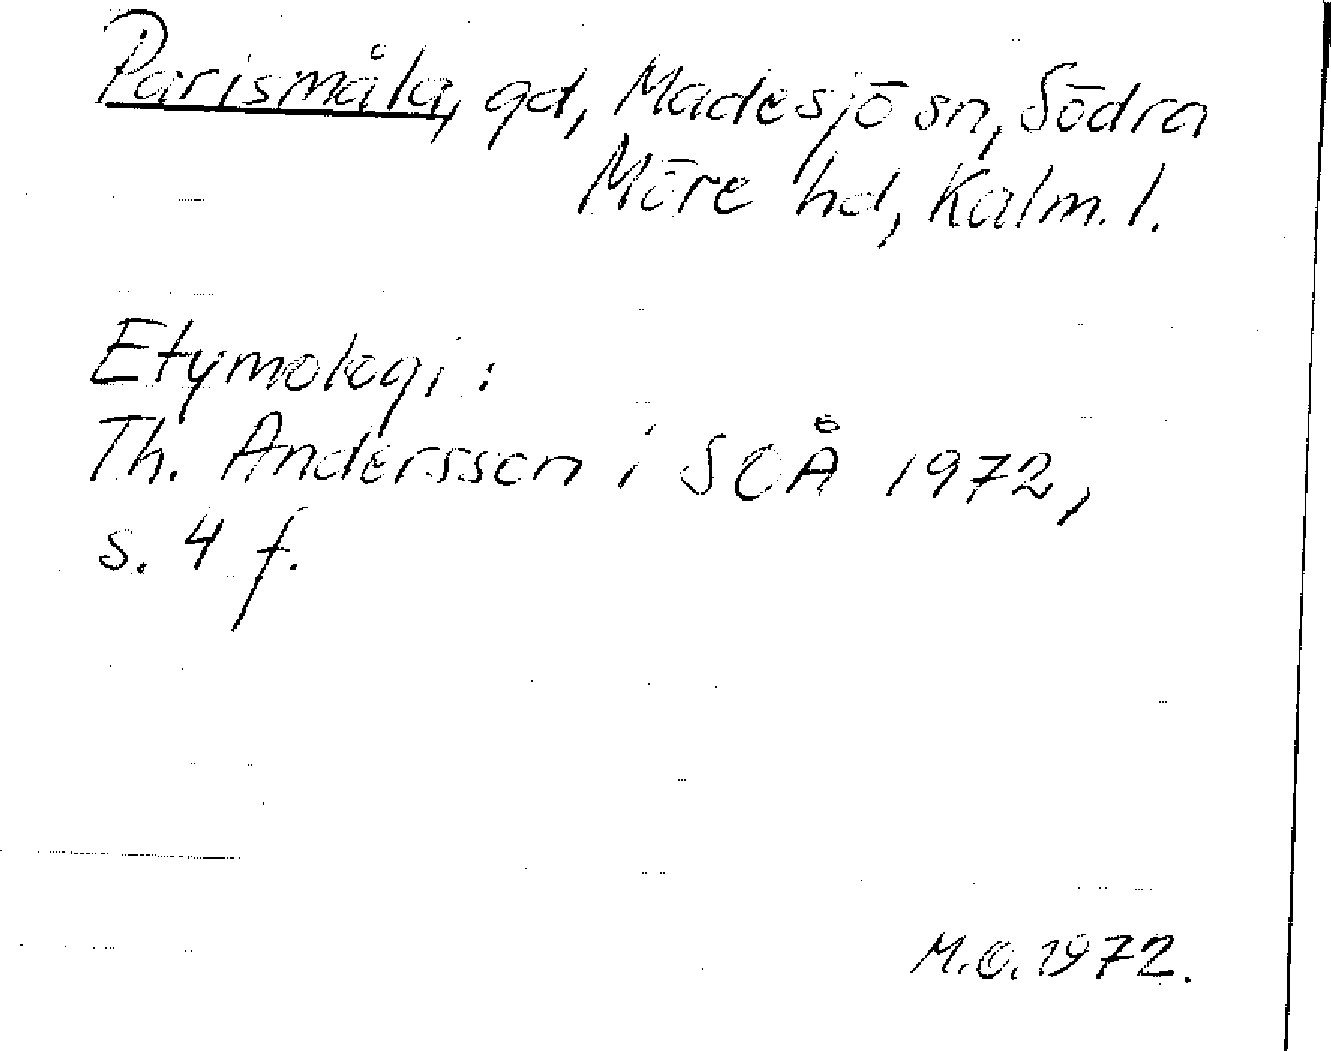 Parismåla, gd, Madesjö sn, Södra
Möre hd, Kalm. l.
Etymologi:
Th. Andersson i SOÅ 1972,
s. 4 f.
M.O. 1972.